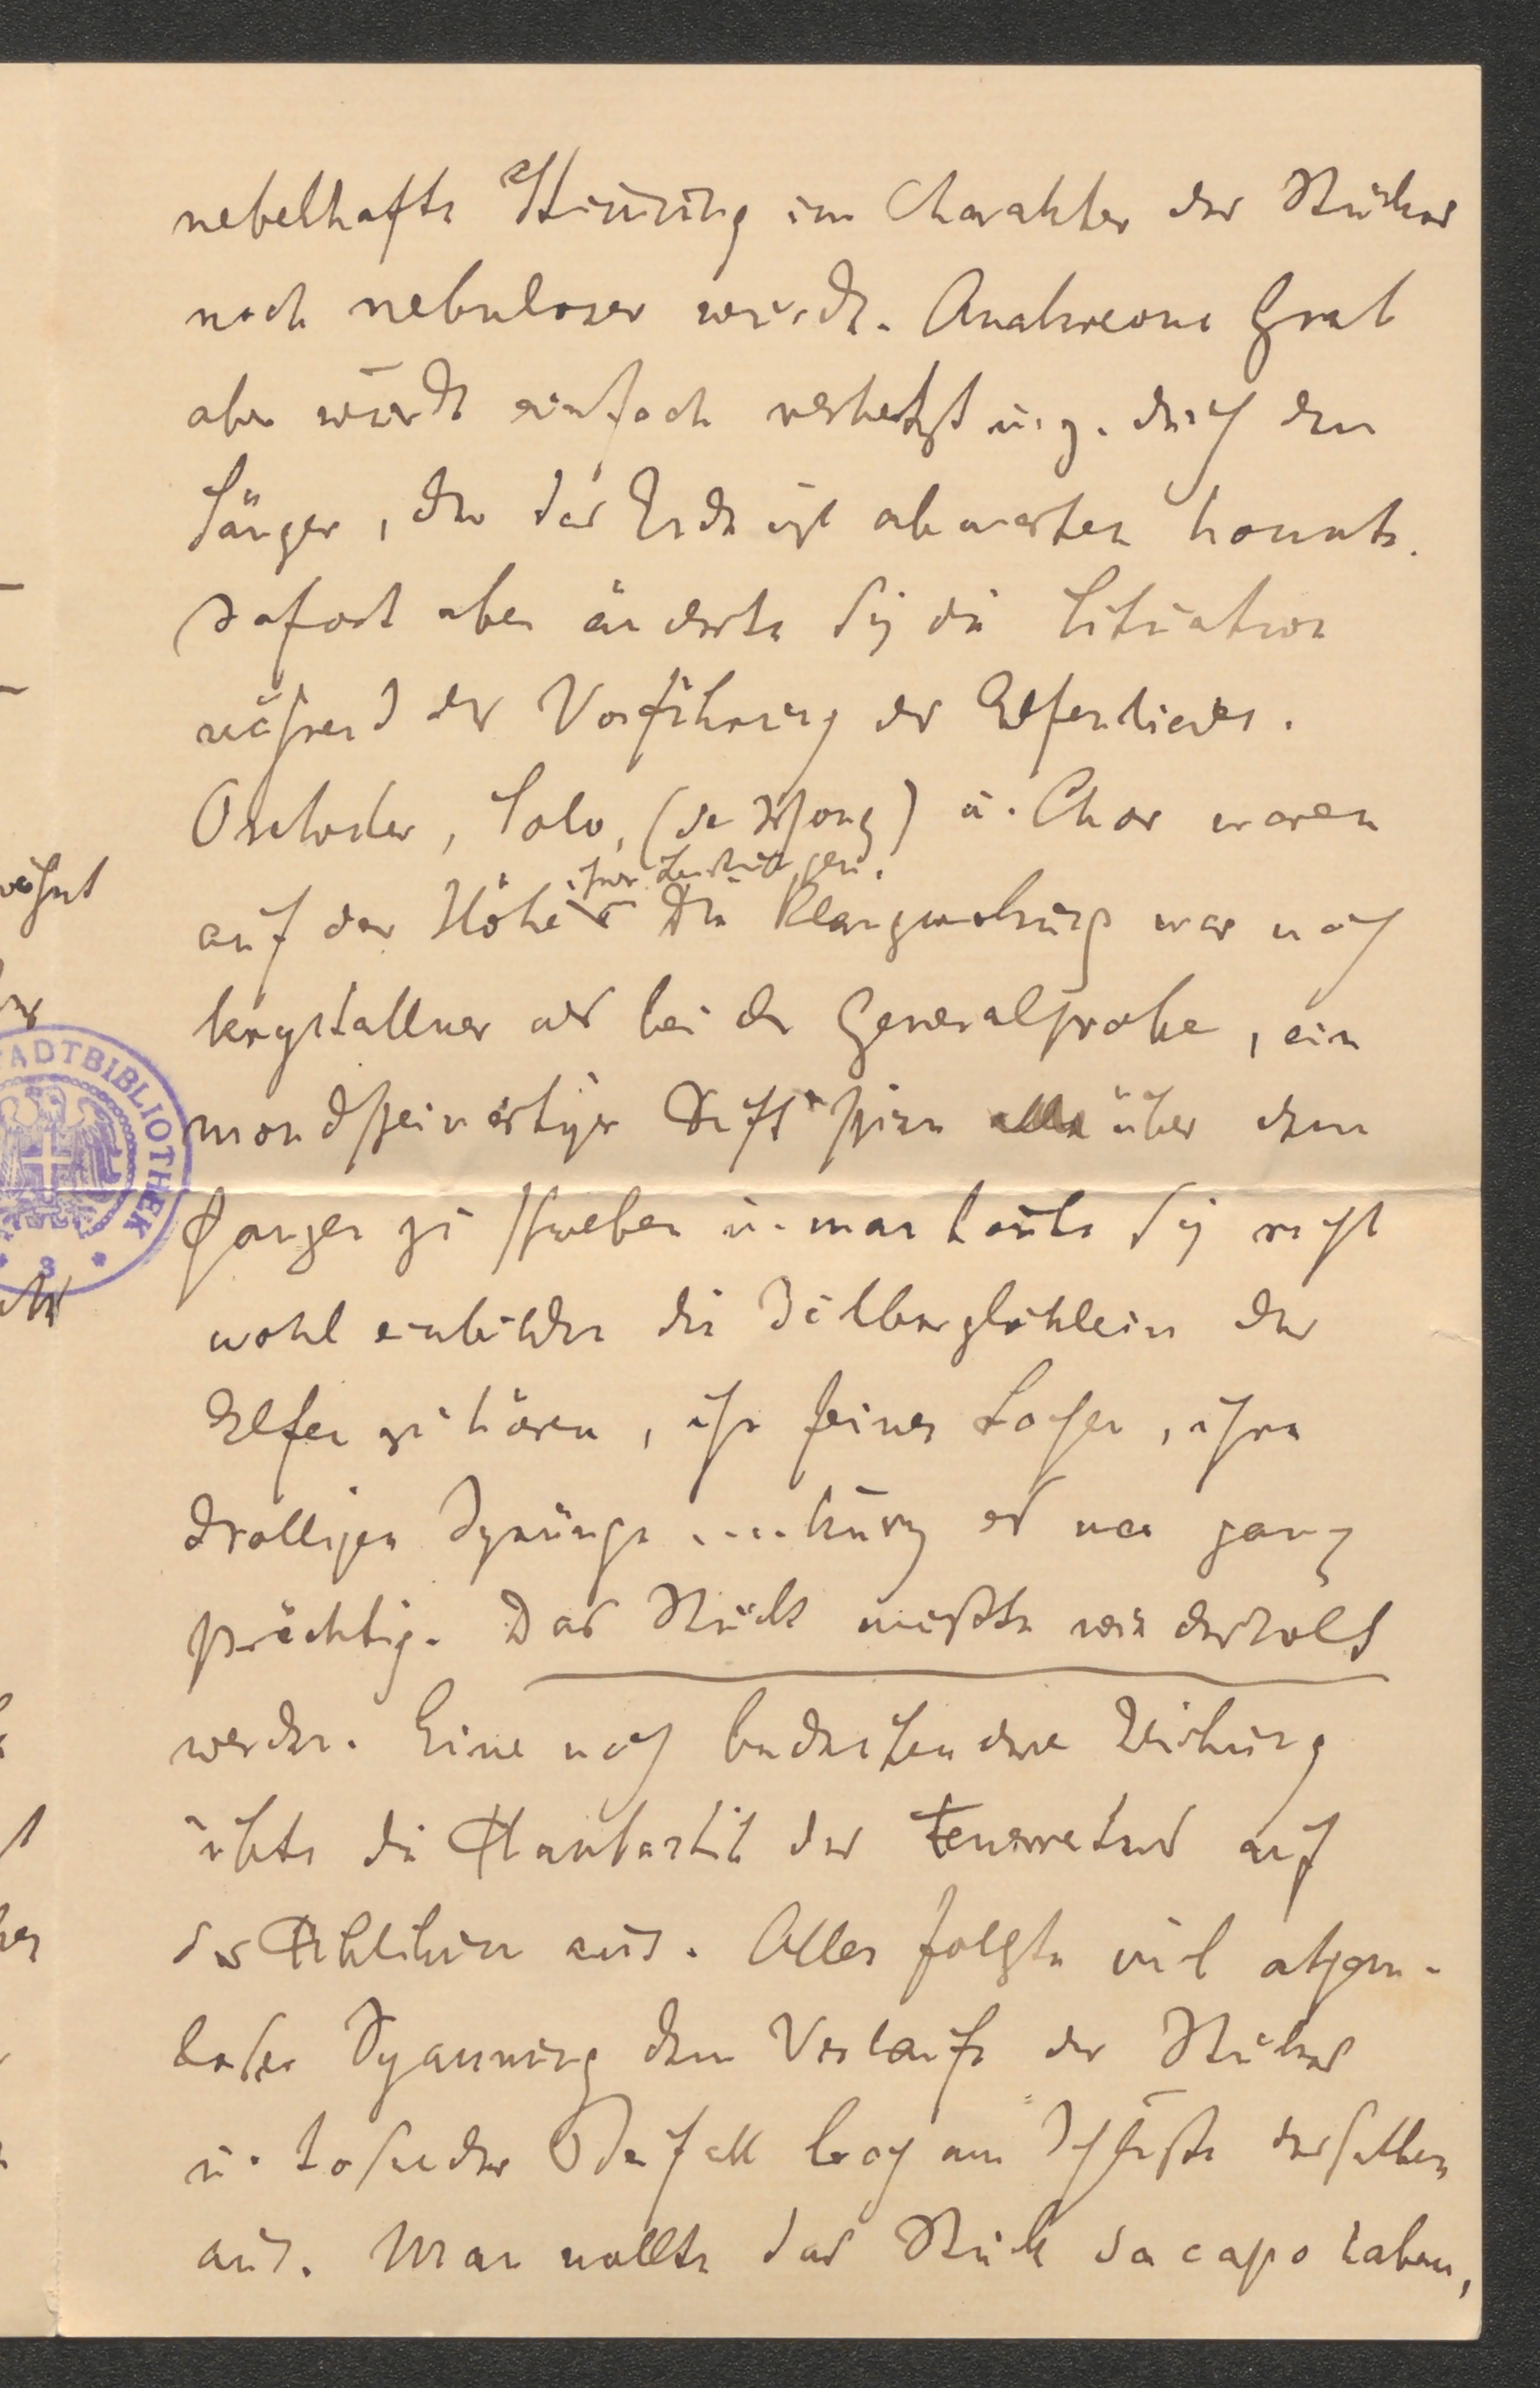 nebelhafte Stimmung im Charakter des Stückes
noch nebuloser wurde. Anakreons Grab
aber wurde einfach verhetzt u. z. durch den
Sänger, der das Ende nicht abwarten konnte.
Sofort aber änderte sich die Situation
während der Vorführung des Elfenliedes.
Orchester, Solo, (de Jong) u. Chor waren
ihrer Leistungen.
auf der Höhe Die Klangwirkung war noch
krystallner als bei der Generalprobe, ein
mondscheinartiger Duft schien über dem
Ganzen zu schweben u. man konnte sich recht
wohl einbilden die Silberglöklein der
Elfen zu hören, ihr feines Lachen, ihre
drolligen Sprünge .... kurz es war ganz
prächtig. Das Stück mußte wiederholt
werden. Eine noch bedeutendere Wirkung
übte die Phantastik des Feuerreiters auf
das Publikum aus. Alles folgte mit athem-
loser Spannung dem Verlaufe des Stückes
u. tosender Beifall brach am Schluße desselben
aus. Man wollte das Stück da capo haben,
wähnt
STADTBIBLIOTHEK
* 3 *